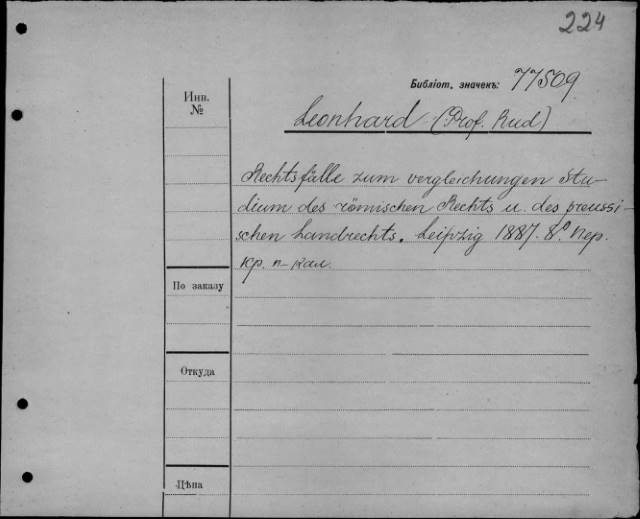 224
Библіот. значекъ: 77509
Инв.
№
Leonhard (Prof. Rud)
Rechtsfälle zum vergleichungen Stu-
dium des römischen Rechts u. des preussi-
schen Landrechts. Leipzig 1887. 8º Пер.
кр. п-кал.
По заказу
Откуда
Цѣна